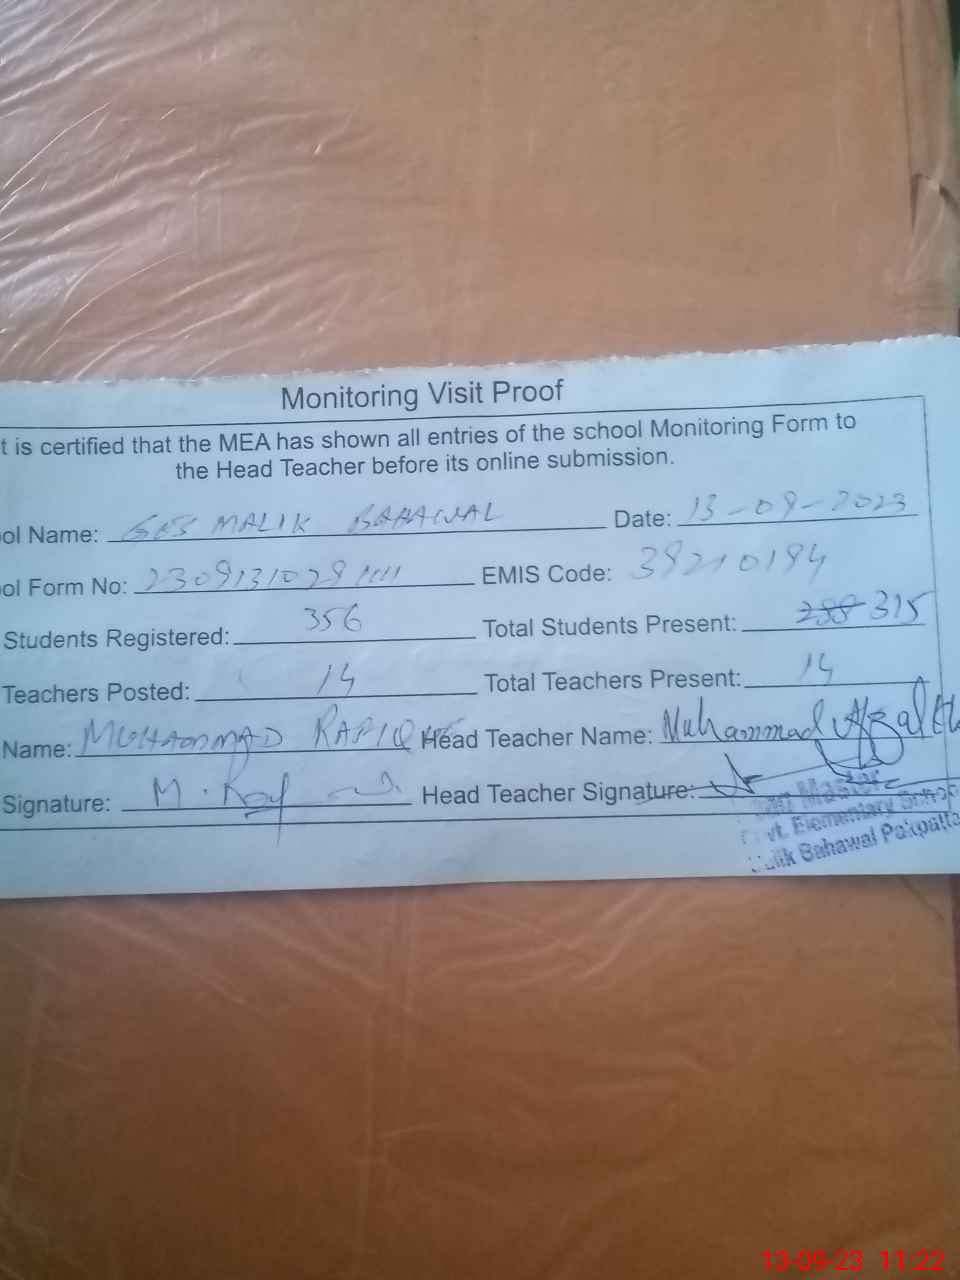 Monitoring Visit Proof
t is certified that the MEA has shown all entries of the school Monitoring Form to
the Head Teacher before its online submission.
ol Name: GES MALIK BAHAWAL Date: 13-09-2023
ol Form No: EMIS Code: 39210194
Students Registered: 356 Total Students Present: 288 315
Teachers Posted: 14 Total Teachers Present: 14
Name: MUHAMMAD RAFIQ Head Teacher Name: Muhammad Afzal
Signature: M. Head Teacher Signature:
Head Master
Govt. Elementary School
Malik Bahawal Pakpatta
13-09-23 11:22